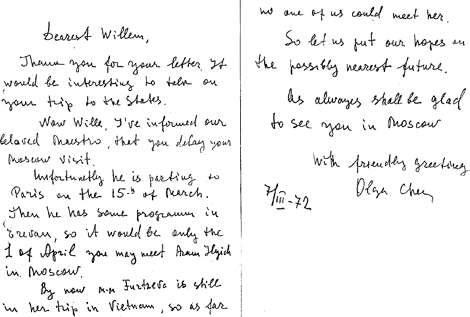 Dearest Willem,
Thank you for your letter. It
would be interesting to take on
your trip to the States.
Now Wille, I've informed our
beloved Maestro, that you delay your
Moscow visit.
Unfortunetly he is parting to
Paris on the 15-th of March.
Then he has some programm in
Erevan, so it would be only the
1 of April you may meet Aram Ilyich
in Moscow.
By now m-m Furtseva is still
in her trip in Vietnam, so as far
no one of us could meet her.
So let us put our hopes on
the possibly nearest future.
As always shall be glad
to see you in Moscow
With friendly greeting
Olga
7/III-72